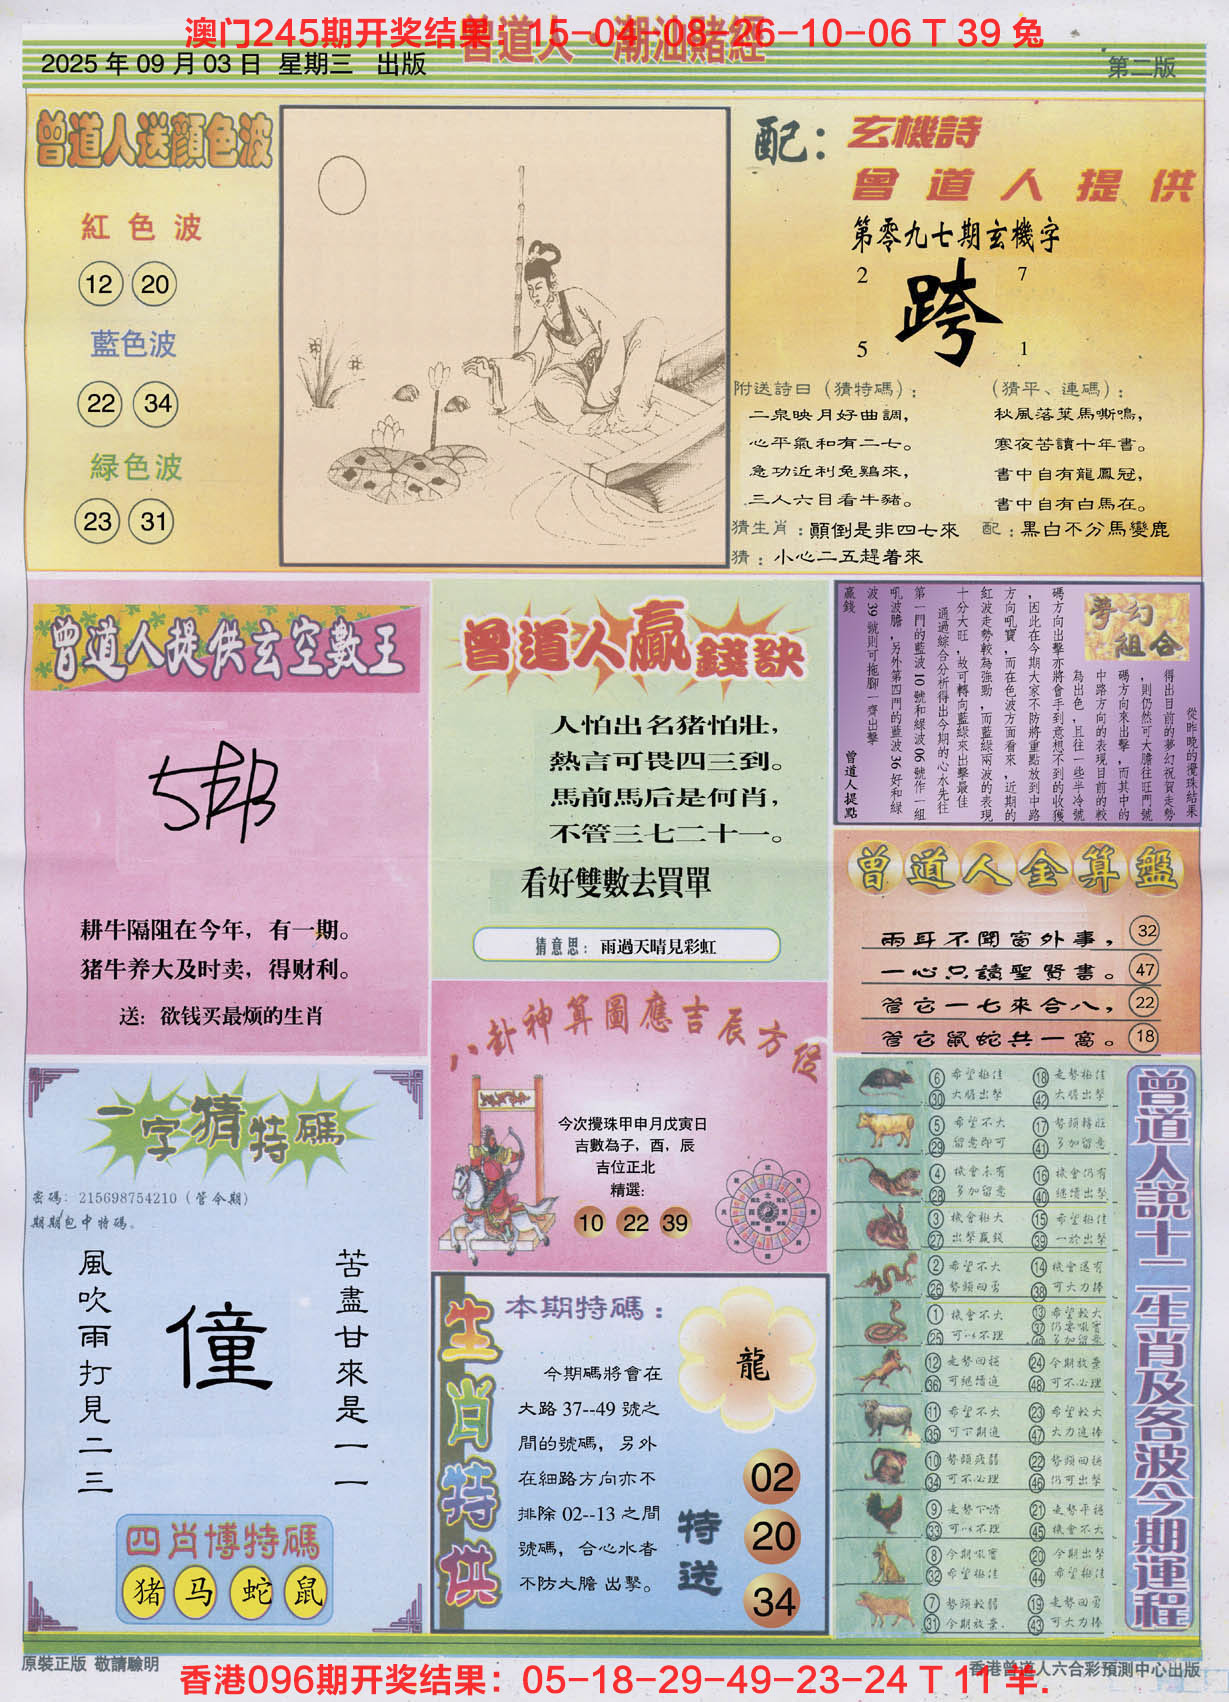 澳门245期开奖结果：15-04-08-26-10-06 T 39 兔
曾道人·潮汕賭經
2025 年 09 月 03 日 星期三 出版
第二版
曾道人送顏色波
紅色波
12 20
藍色波
22 34
緑色波
23 31
配：玄機詩
曾道人提供
第零九七期玄機字
2 7
跨
5 1
附送詩日（猜特碼）：
二泉映月好曲調，
心平氣和有二七。
急功近利兔鷄來，
三人六目看牛豬。
（猜平、連碼）：
秋風落葉馬嘶鳴，
寒夜苦讀十年書。
書中自有龍鳳冠，
書中自有白馬在。
猜生肖：顛倒是非四七來 配：黑白不分馬變鹿
猜：小心二五趕着來
曾道人提供玄空數王
耕牛隔阻在今年，有一期。
猪牛养大及时卖，得财利。
送：欲钱买最烦的生肖
曾道人贏錢訣
人怕出名猪怕壯，
熱言可畏四三到。
馬前馬后是何肖，
不管三七二十一。
看好雙數去買單
猜意思：雨過天晴見彩虹
夢幻組合
從昨晚的攪珠結果
得出目前的夢幻祝賀走勢
，則仍然可大膽往旺門號
碼方向來出擊，而其中的
中路方向的表現目前的較
為出色，且往一些半冷號
碼方向出擊亦將會手到意想不到的收獲
，因此在今期大家不防將重點放到中路
方向吼寶，而在色波方面看來，近期的
紅波走勢較為強勁，而藍綠兩波的表現
十分大旺，故可轉向藍綠來出擊最佳
通過綜合分析得出今期的心水先往
第一門的藍波 10 號和綠波 06 號作一組
吼波膽，另外第四門的藍波 36 好和綠
波 39 號則可拖腳一齊出擊
贏錢
曾道人提點
曾道人金算盤
兩耳不聞窗外事， 32
一心只讀聖賢書。 47
管它一七來合八， 22
管它鼠蛇共一窩。 18
八卦神算圖應吉辰方位
今次攪珠甲申月戊寅日
吉數為子，酉，辰
吉位正北
精選：
10 22 39
一字猜特碼
密碼：215698754210（管令期）
期期包中特碼。
苦盡甘來是一一
僮
風吹雨打見二三
四肖博特碼
猪 马 蛇 鼠
生肖特供
本期特碼：
龍
今期碼將會在
大路 37--49 號之
間的號碼，另外
在細路方向亦不
排除 02--13 之間
號碼，合心水者
不防大膽 出擊。
特送
02
20
34
曾道人説十二生肖及各波今期運程
6 希望極佳 18 走勢極佳
30 大膽出擊 42 大膽出擊
5 希望不大 17 勢頭轉旺
29 留意即可 41 多加留意
4 機會未有 16 機會仍有
28 多加留意 40 继續出擊
3 機會極大 15 希望極佳
27 出擊贏錢 39 一於出擊
2 希望不大 14 機會還有
26 勢頭回勇 38 可大力捧
1 機會不大 13 希望較大
37 仍要吼實
25 可以不理 49 多加留意
12 走勢回穩 24 今期放棄
36 可继續追 48 可不必理
11 希望不大 23 希望較大
35 可下期追 47 大力追捧
10 勢頭疲弱 22 勢頭回穩
34 可不必理 46 仍可出擊
9 走勢下滑 21 走勢平穩
33 可以不理 45 機會不大
8 今期吼實 20 今期出擊
32 希望極佳 44 希望極佳
7 勢頭較弱 19 走勢回勇
31 今期放棄． 43 可大力捧
原裝正版 敬請驗明
香港曾道人六合彩預測中心出版
香港096期开奖结果：05-18-29-49-23-24 T 11 羊.